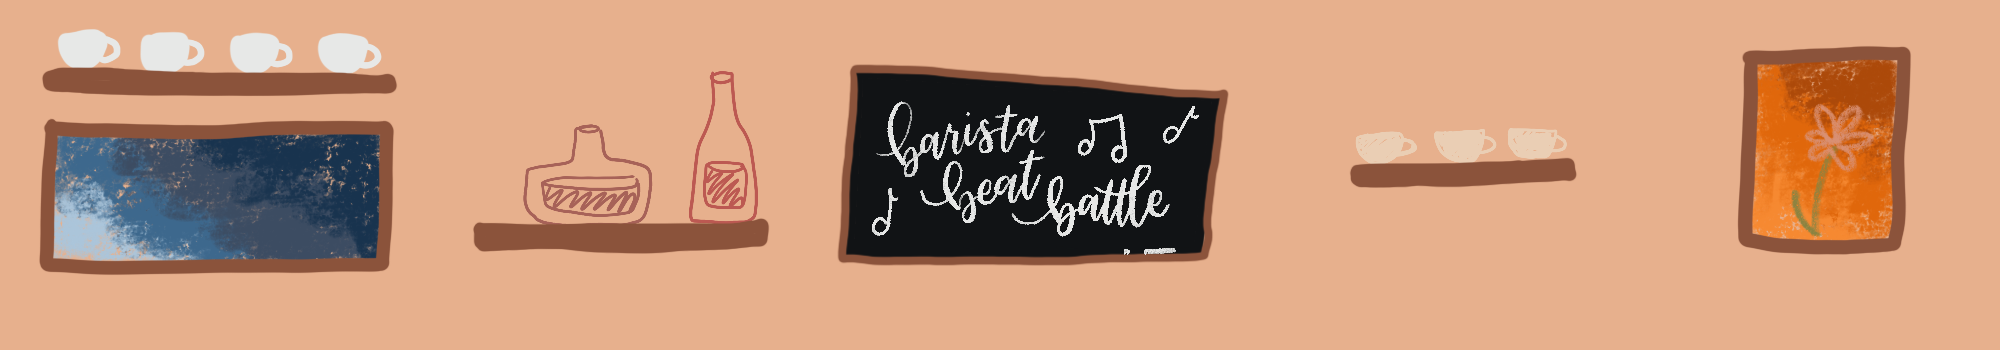 barista
beat battle